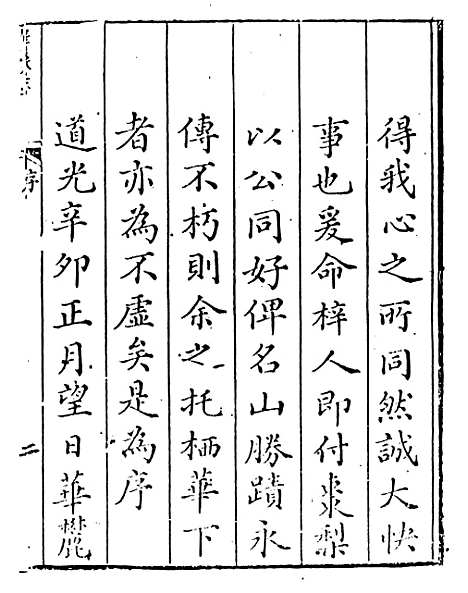 得我心之所同然誠大快
事也爰命梓人即付棗梨
以公同好俾名山勝蹟永
傳不朽則余之托栖華下
者亦為不虛矣是為序
道光辛卯正月望日華麓
序
二